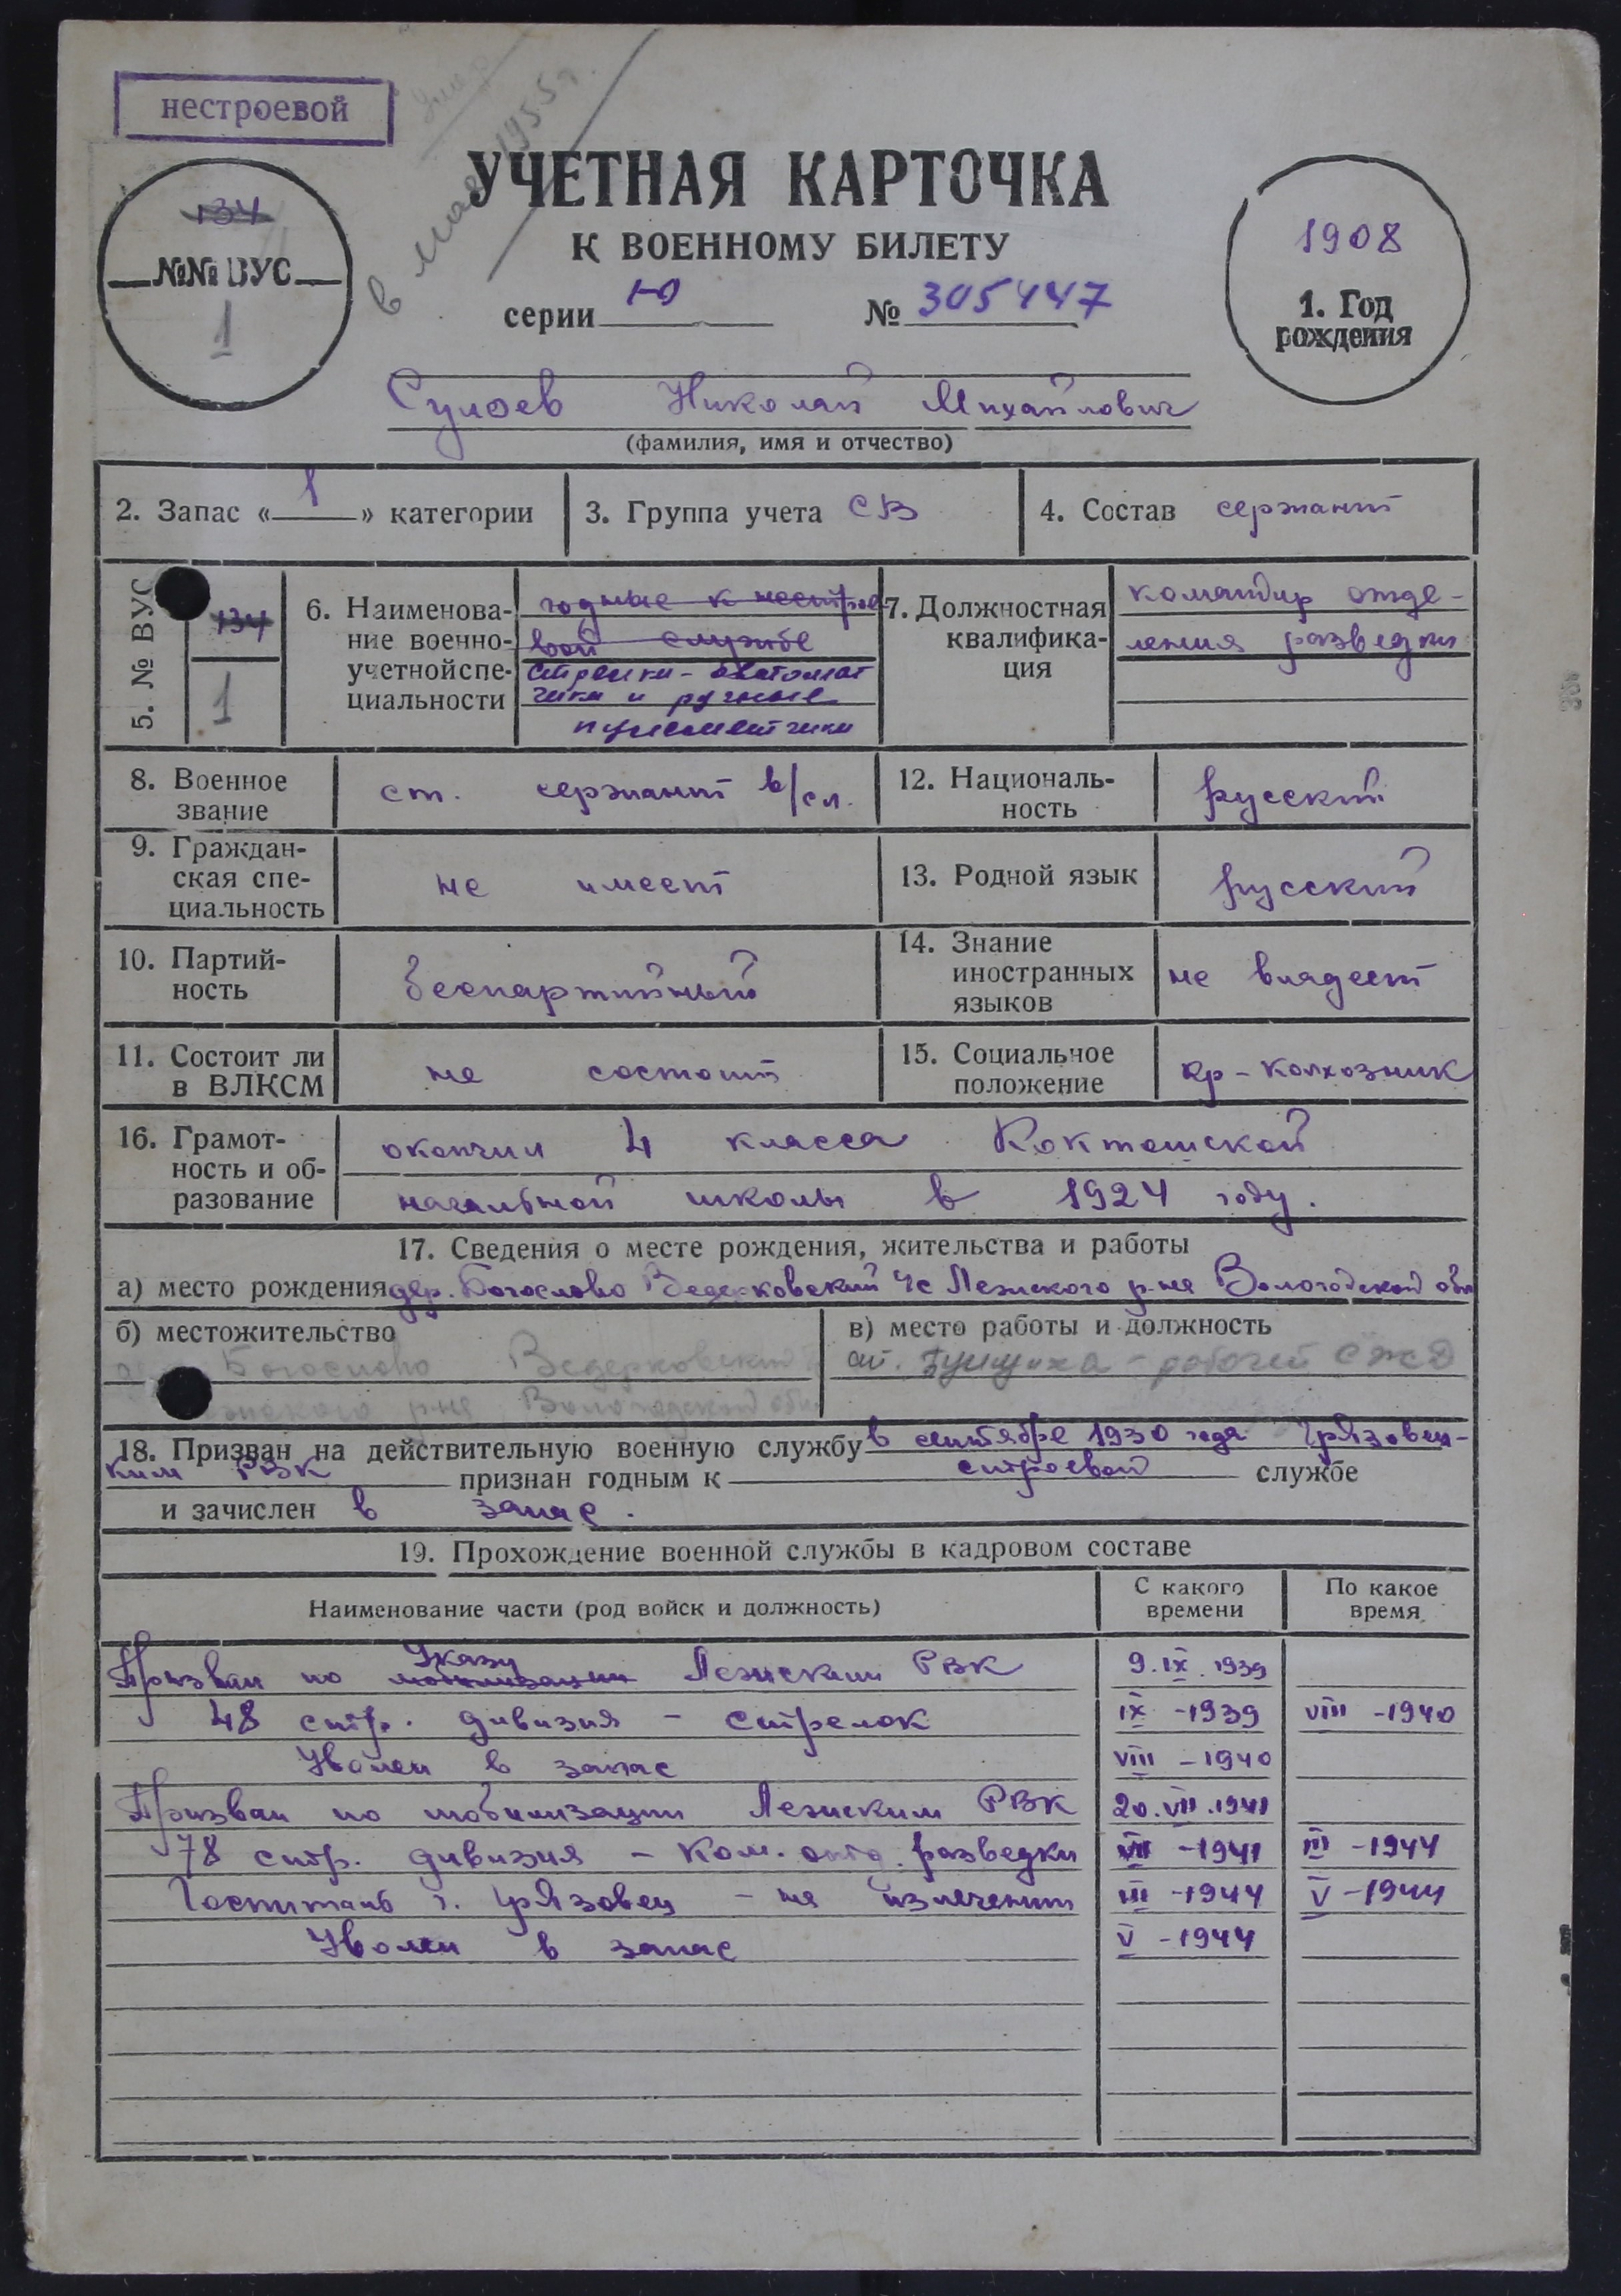 нестроевой
умер
в мае 1955 г.
УЧЕТНАЯ КАРТОЧКА
К ВОЕННОМУ БИЛЕТУ
серии Ю № 305447
134
№№ ВУС
1
1908
1. Год
рождения
Сулоев Николай Михайлович
(фамилия, имя и отчество)
2. Запас «1» категории
3. Группа учета СВ
4. Состав сержант
5. № ВУС
134
1
6. Наименова-
ние военно-
учетной спе-
циальности
годные к нестрое-
вой службе
стрелки-автомат
чики и ручные
пулеметчики
7. Должностная
квалифика-
ция
командир отде-
ления разведки
8. Военное
звание
ст. сержант в/сл.
12. Националь-
ность
русский
9. Граждан-
ская спе-
циальность
не имеет
13. Родной язык
русский
10. Партий-
ность
беспартийный
14. Знание
иностранных
языков
не владеет
11. Состоит ли
в ВЛКСМ
не состоит
15. Социальное
положение
кр-колхозник
16. Грамот-
ность и об-
разование
окончил 4 класса
начальной школы в 1924 году.
17. Сведения о месте рождения, жительства и работы
а) место рождения дер. Богослово Ведерковский с/с Лежского р-на Вологодской обл
б) местожительство
Богослово Ведерковский
р-на Вологодской обл
в) место работы и должность
ст. Бушуиха - рабочий СЖД
18. Призван на действительную военную службу в сентябре 1930 года Грязовец-
ким РВК признан годным к строевой службе
и зачислен в запас.
19. Прохождение военной службы в кадровом составе
Наименование части (род войск и должность)
С какого
времени
По какое
время
Указу
Призван по мобилизации Лежским РВК 9.IX.1939
48 стр. дивизия - стрелок IX-1939 VIII-1940
Уволен в запас VIII-1940
Призван по мобилизации Лежским РВК 20.VII.1941
78 стр. дивизия - ком. отд. разведки VII-1941 III-1944
Госпиталь г. Грязовец - на излечении III-1944 V-1944
Уволен в запас V-1944